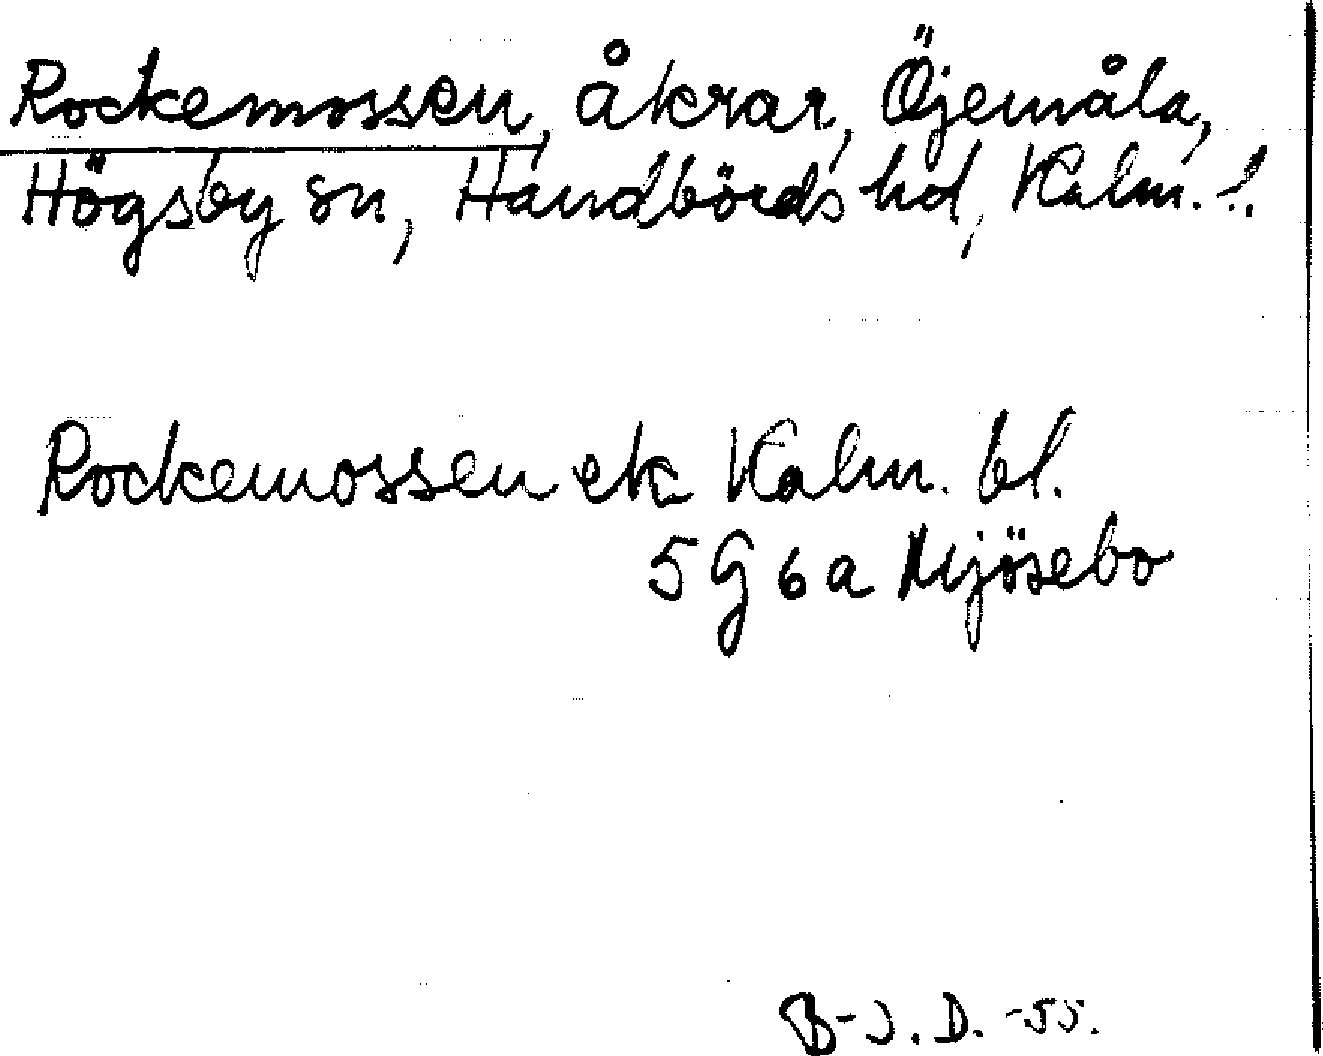 Rockemossen, åkrar, Öjemåla,
Högsby sn, Handbörds hd, Kalm. l.
Rockemossen ek Kalm. bl.
5 G 6 a Mjösebo
B-J. D. -55.